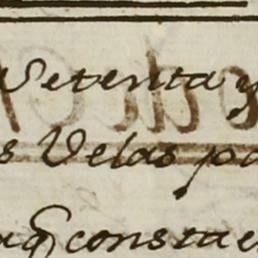 Setenta y
s Velas pa
aq̃ consta e